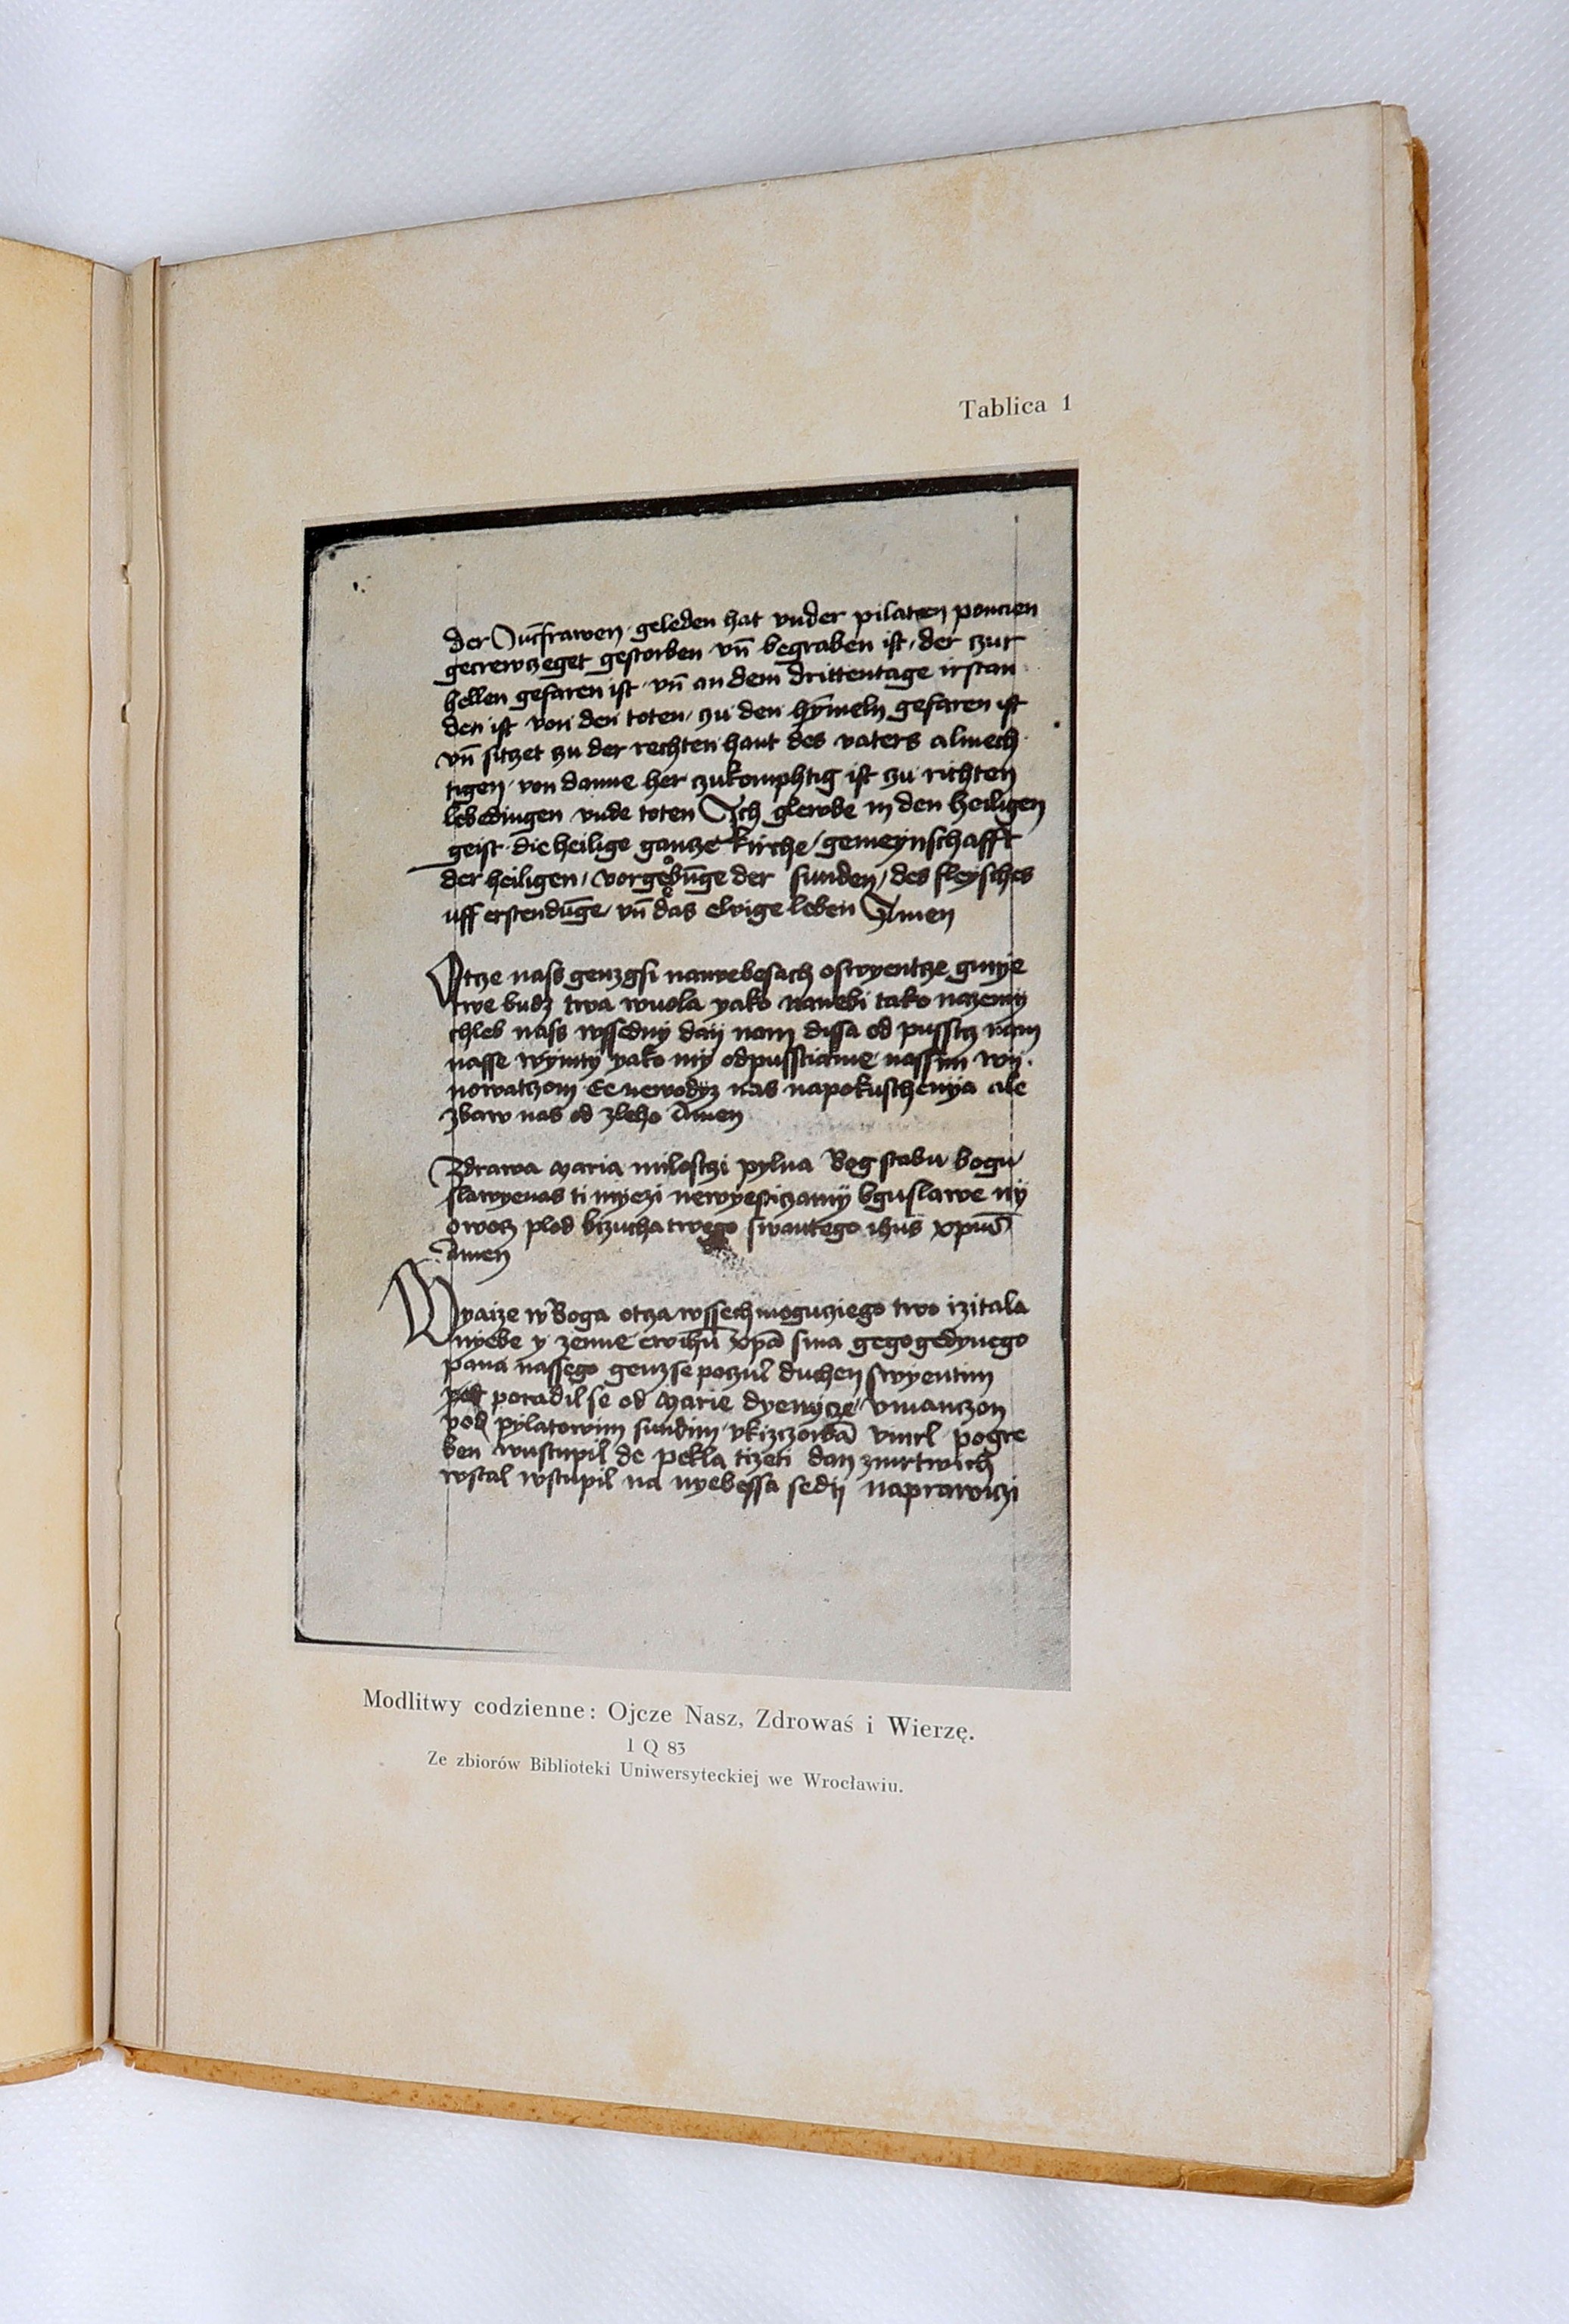 Tablica 1
der Jūcfrawen geleden hat vnder pilaten poncien
gecrewczeget gestorben vn̄ begraben ist, der czur
hellen gefaren ist vn̄ an dem drittentage irstan
den ist von den toten, zu den hȳmeln gefaren ist
vn̄ sitzet zu der rechten hant des vaters almech
tigen, von danne her czukomphtig ist zu richten
lebedingen vnde toten Ich glewbe in den heiligen
geist die heilige gancze kirche / gemeynschafft
der heiligen, vorgebūge der sunden, des fleysches
uff erstendūge, vn̄ das ewige leben Amen
Otze nass genzgsi nanebesach oswyentze gmye
twe budz twa wuola yako nanebi tako nazemy
chleb nass wssedny day nam dissa od pusstz nam
nasse wynny yako my odpusstiame nassim wy
nowatzom Ee newodyz nas napokuschenya ale
zbaw nas od zleho Amen
Zdrawa maria milostzi pylna Bog stobu bogu
slawyenas ti myezi newyesczamy bguslawe ny
owotz plod brzucha twego swantego ihūs xpūs
Amen
Wyaize w Boga otza wssechmoguziego two izitala
nyebe y zemie ewihū xpā sina gego gedynego
pana nassego genzse poczul duchen swyentim
poradil se od marie dyewicze, vmanczon
pod pylatowim sundim, vkizczowā vmrl pogre
ben wustupil de pekla tizeti dan zmrtwich
wstal wstupil na nyebessa sedy naprawiczi
Modlitwy codzienne: Ojcze Nasz, Zdrowaś i Wierzę.
I Q 83
Ze zbiorów Biblioteki Uniwersyteckiej we Wrocławiu.